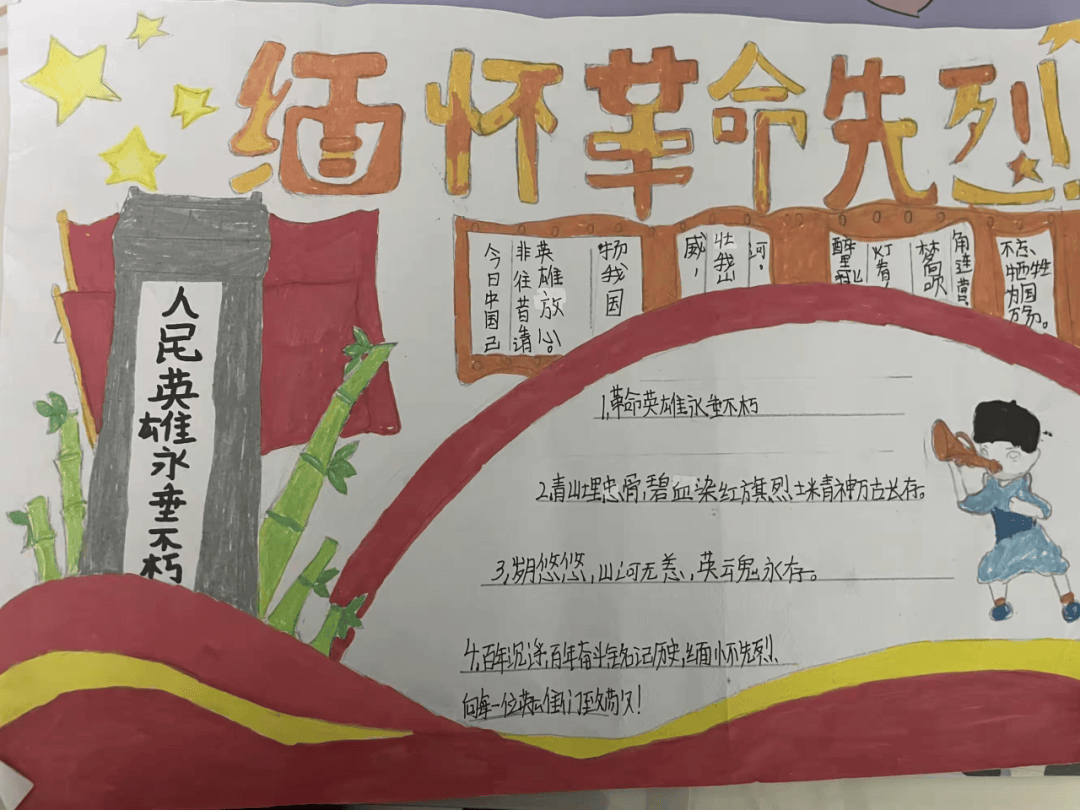 缅怀革命先烈
人民英雄永垂不朽
今日中国已
非往昔请
英雄放心。
物我国
威，
壮我山
河。
醉里
灯看
梦回吹
角连营
不忘
牺牲
为国
1,革命英雄永垂不朽
2.青山埋忠骨,碧血染红旗,烈士精神万古长存。
3,岁月悠悠,山河无恙,英魂永存。
4,百年沉淀,百年奋斗,铭记历史,缅怀先烈
向每一位英雄们致敬!